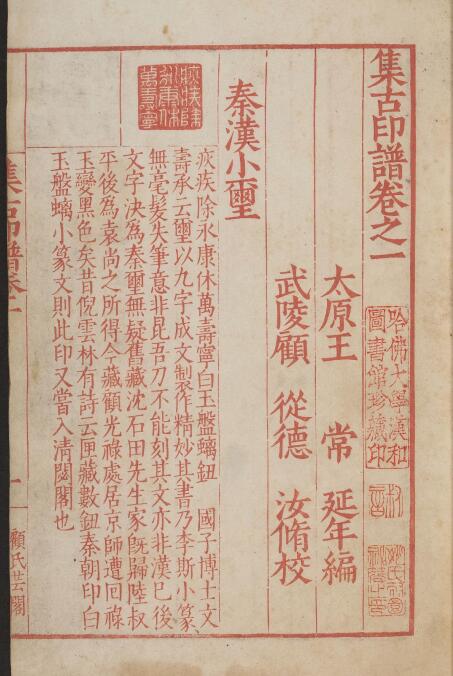 集古印譜卷之一
太原王 常 延年編
武陵顧 從德 汝脩校
哈佛大學漢和
圖書館珍藏印
秦漢小璽
疢疾除
永康休
萬壽寧
疢疾除永康休萬壽寧白玉盤螭鈕 國子博士文
壽承云璽以九字成文製作精妙其書乃李斯小篆
無毫髮失筆意非昆吾刀不能刻其文亦非漢巳後
文字決為秦璽無疑舊藏沈石田先生家旣歸陸叔
平後為袁尚之所得今藏顧光祿處居京師遭回祿
玉變黑色矣昔倪雲林有詩云匣藏數鈕秦朝印白
玉盤螭小篆文則此印又當入清閟閣也
集古印譜卷一
一
顧氏芸閣